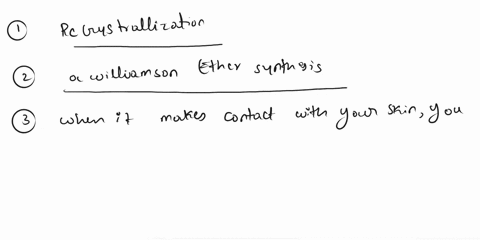 ① Recrystrallization
② a williamson Ether synthesis
③ when it makes contact with your skin, you